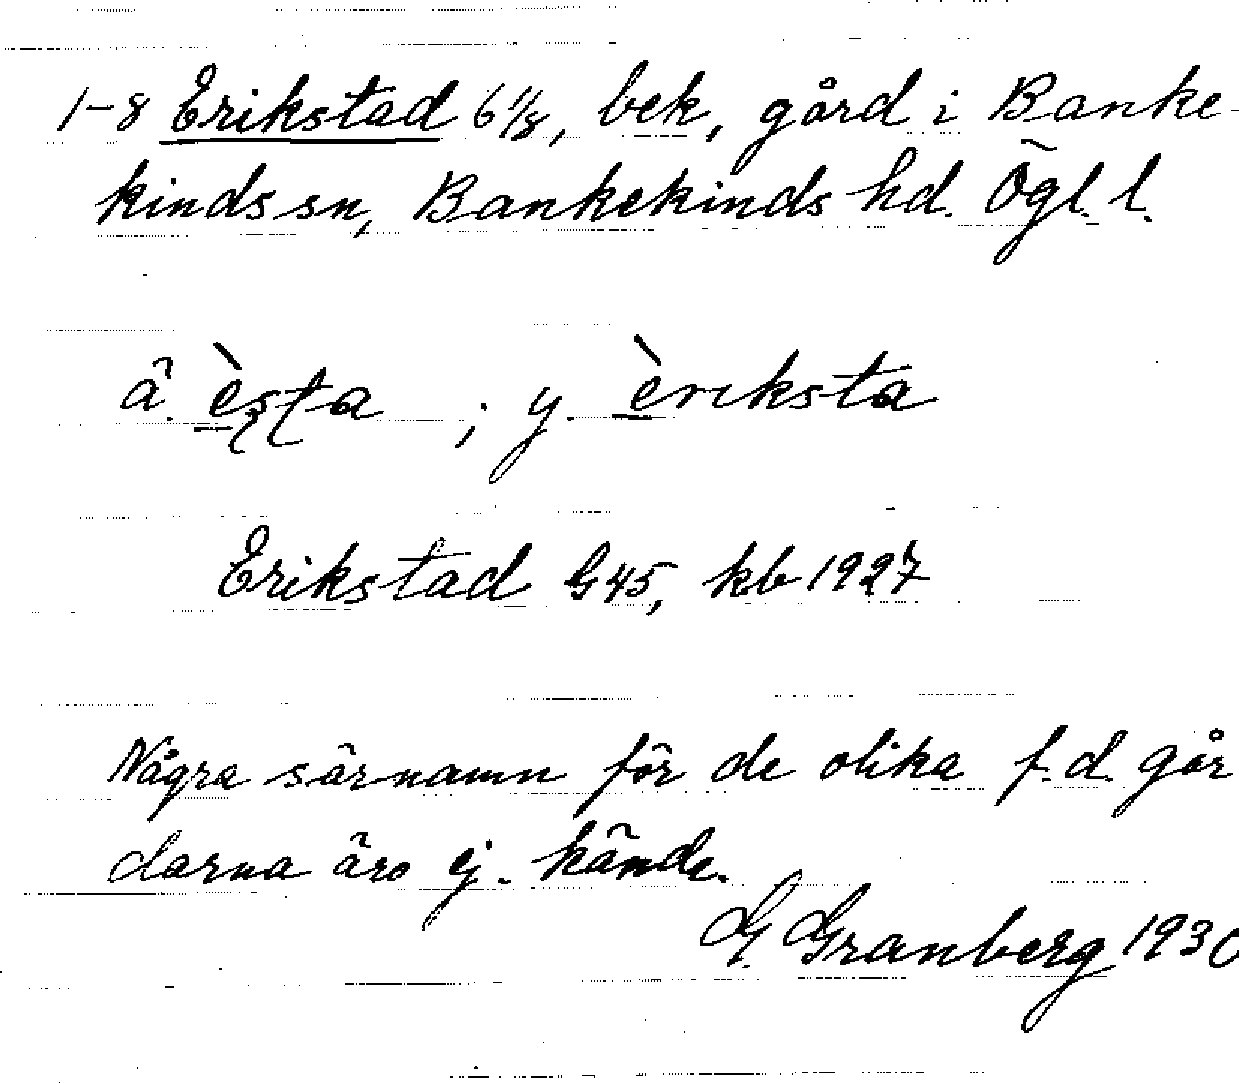 1-8 Erikstad 6 1/8, bek, gård i Banke-
kinds sn, Bankekinds hd. Ögl. l.
ä. èsta ; y. èriksta
Erikstad G45, kb 1927
Några särnamn för de olika f.d. går
darna äro ej. kände.
G. Granberg 1930